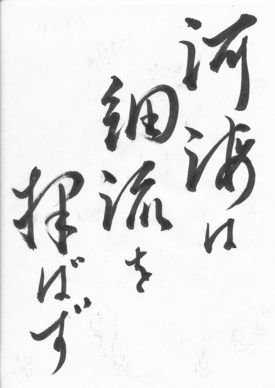 河海は
細流を
択ばず